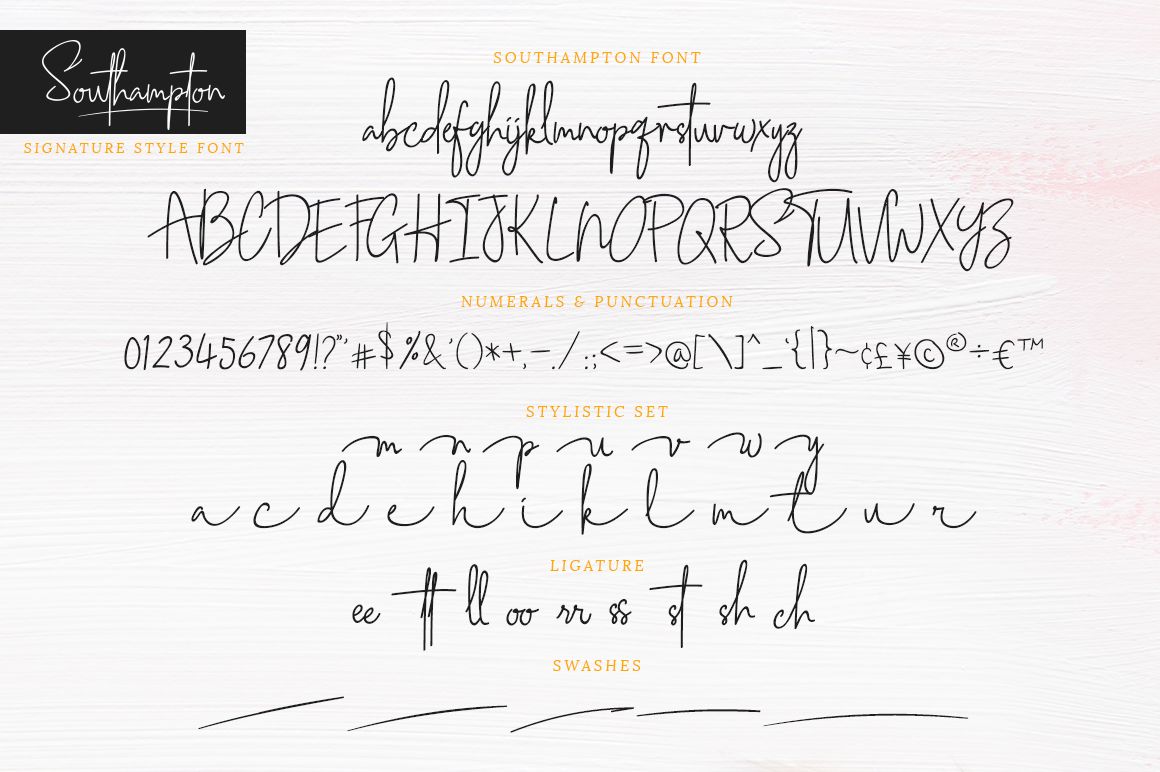 Southampton
SIGNATURE STYLE FONT
SOUTHAMPTON FONT
abcdefghijklmnopqrstuvwxyz
ABCDEFGHIJKLMNOPQRSTUVWXYZ
NUMERALS & PUNCTUATION
0123456789!?"'#$%&'()*+,-./:;<=>@[\]^_`{|}~¢£¥©®÷€™
STYLISTIC SET
m n p u v w y
a c d e h i k l m t u r
LIGATURE
ee tt ll oo rr ss st sh ch
SWASHES